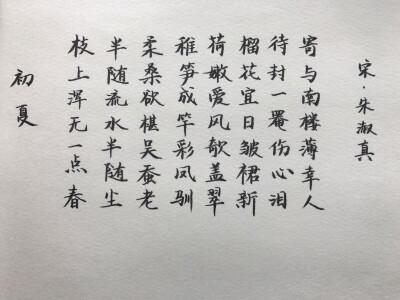 初夏
枝上浑无一点春
半随流水半随尘
柔桑欲椹吴蚕老
稚笋成竿彩凤驯
荷嫩爱风欹盖翠
榴花宜日皱裙新
待封一罨伤心泪
寄与南楼薄幸人
宋·朱淑真